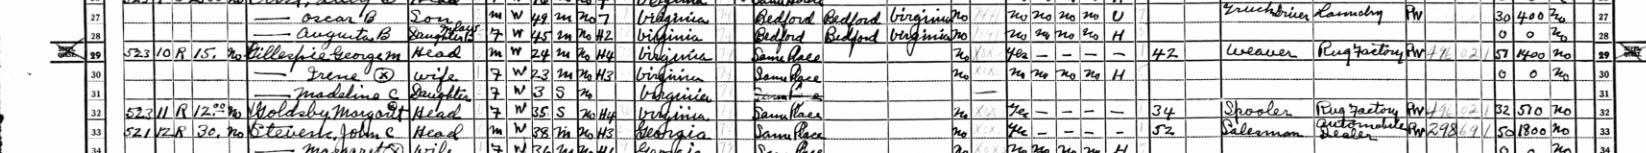 27 — Oscar B Son M W 49 M No 7 Virginia Bedford Bedford Virginia No No No No No U Truck Driver Laundry PW 30 400 No 27
28 — Augusta B Daughter F W 45 M No H2 Virginia Bedford Bedford Virginia No No No No No H 0 0 No 28
29 523 10 R 15. No Gillespie George M Head M W 24 M No H4 Virginia Same Place No Yes — — — 42 Weaver Rug Factory PW 496 02 1 51 1400 No 29
30 — Irene ⓧ Wife F W 23 M No H3 Virginia Same Place No No No No No H 0 0 No 30
31 — Madeline C Daughter F W 3 S No Virginia — 31
32 523 11 R 12.00 No Goldsby Margaret Head F W 35 S No H4 Virginia Same Place No Yes — — — — 34 Spooler Rug Factory PW 496 02 1 32 510 No 32
33 521 12 R 30. No Stevens, John C Head M W 38 M No H3 Georgia Same Place No Yes — — — — 52 Salesman Automobile Dealer PW 298 691 50 1800 No 33
34 — Margaret ⓧ Wife F W 36 M No Georgia No No No No H 0 0 No 34